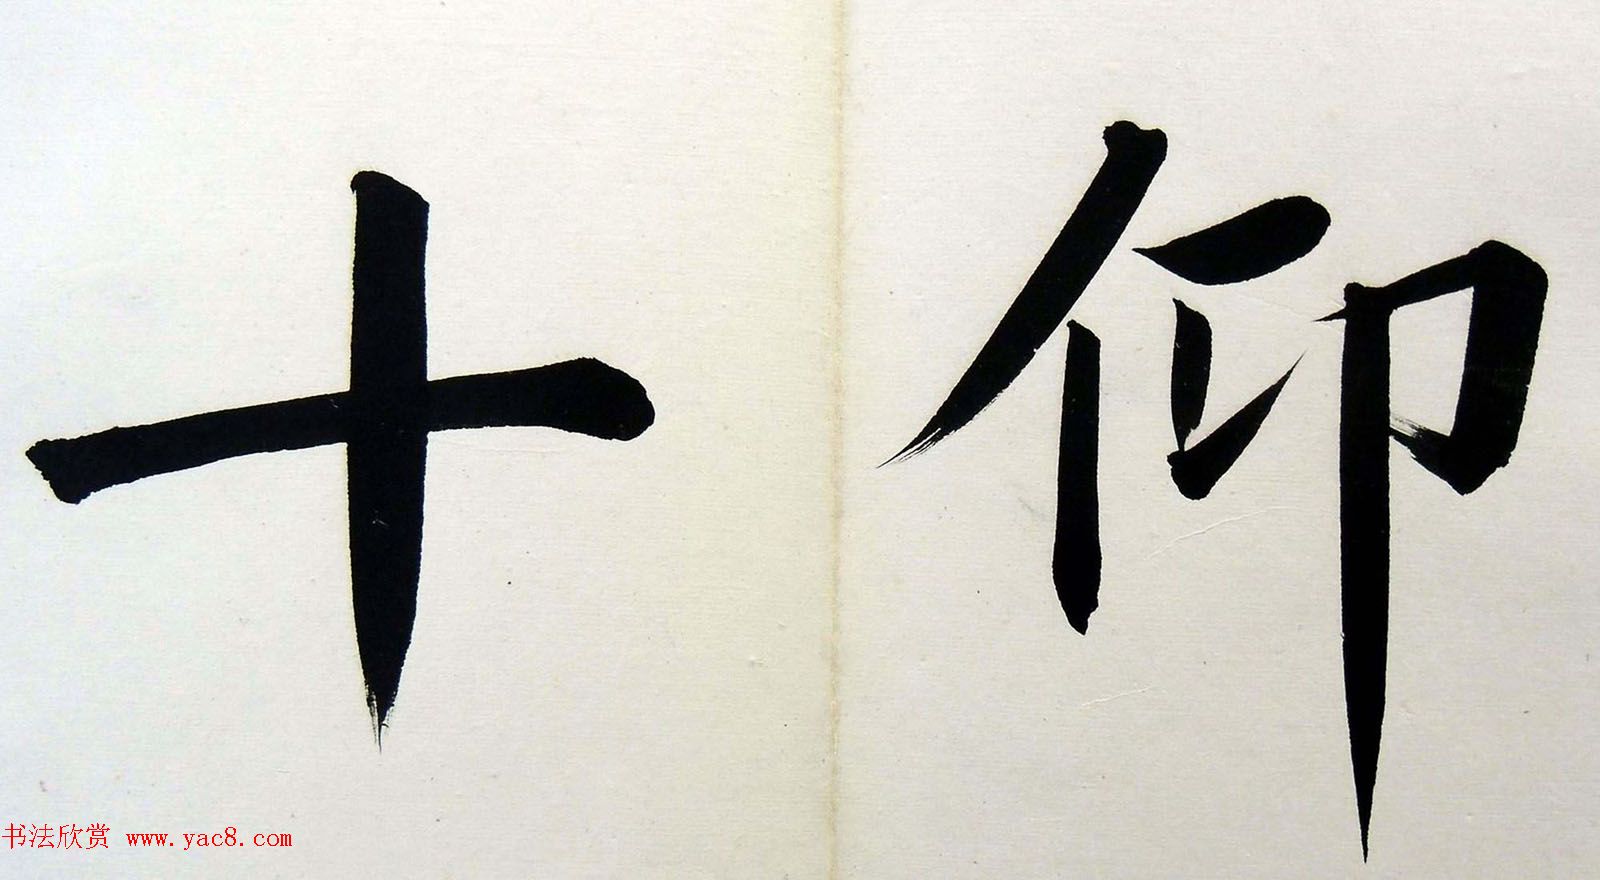 仰
十
书法欣赏 www.yac8.com